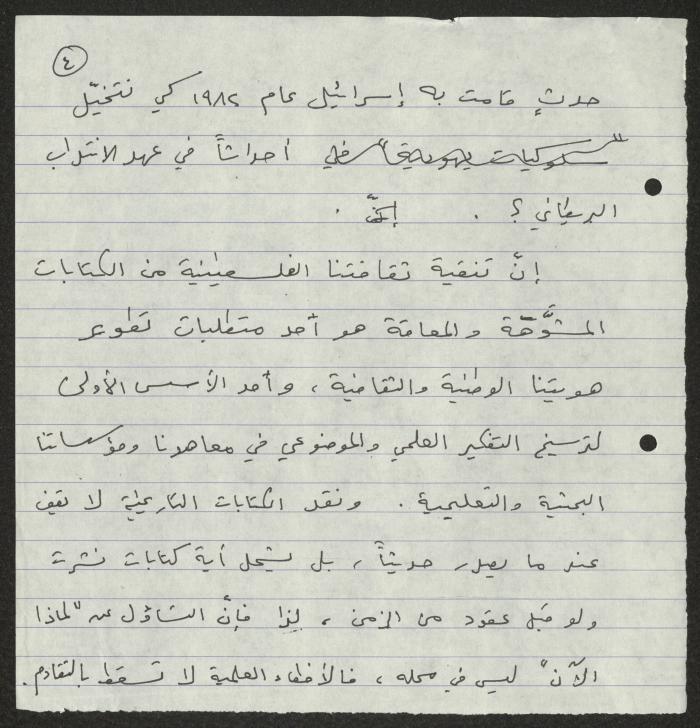 ٤
حدثٍ قامت به إسرائيل عام ١٩٨٢ كي نتخيّل
أحداثاً في عهد الانتداب
البريطاني ؟ .
إنّ تنقية ثقافتنا الفلسطينية من الكتابات
المشوَّهة والمعاقة هو أحد متطلبات تطوير
هويتنا الوطنية والثقافية ، وأحد الأسس الأولى
لترسيخ التفكير العلمي والموضوعي في معاهدنا ومؤسساتنا
البحثية والتعليمية . ونقد الكتابات التاريخية لا يقف
عند ما يصدر حديثاً ، بل يشمل أية كتابات نشرت
ولو قبل عقود من الزمن ، لذا فإنّ التساؤل عن "لماذا
الآن" ليس في محله ، فالأخطاء العلمية لا تسقط بالتقادم .